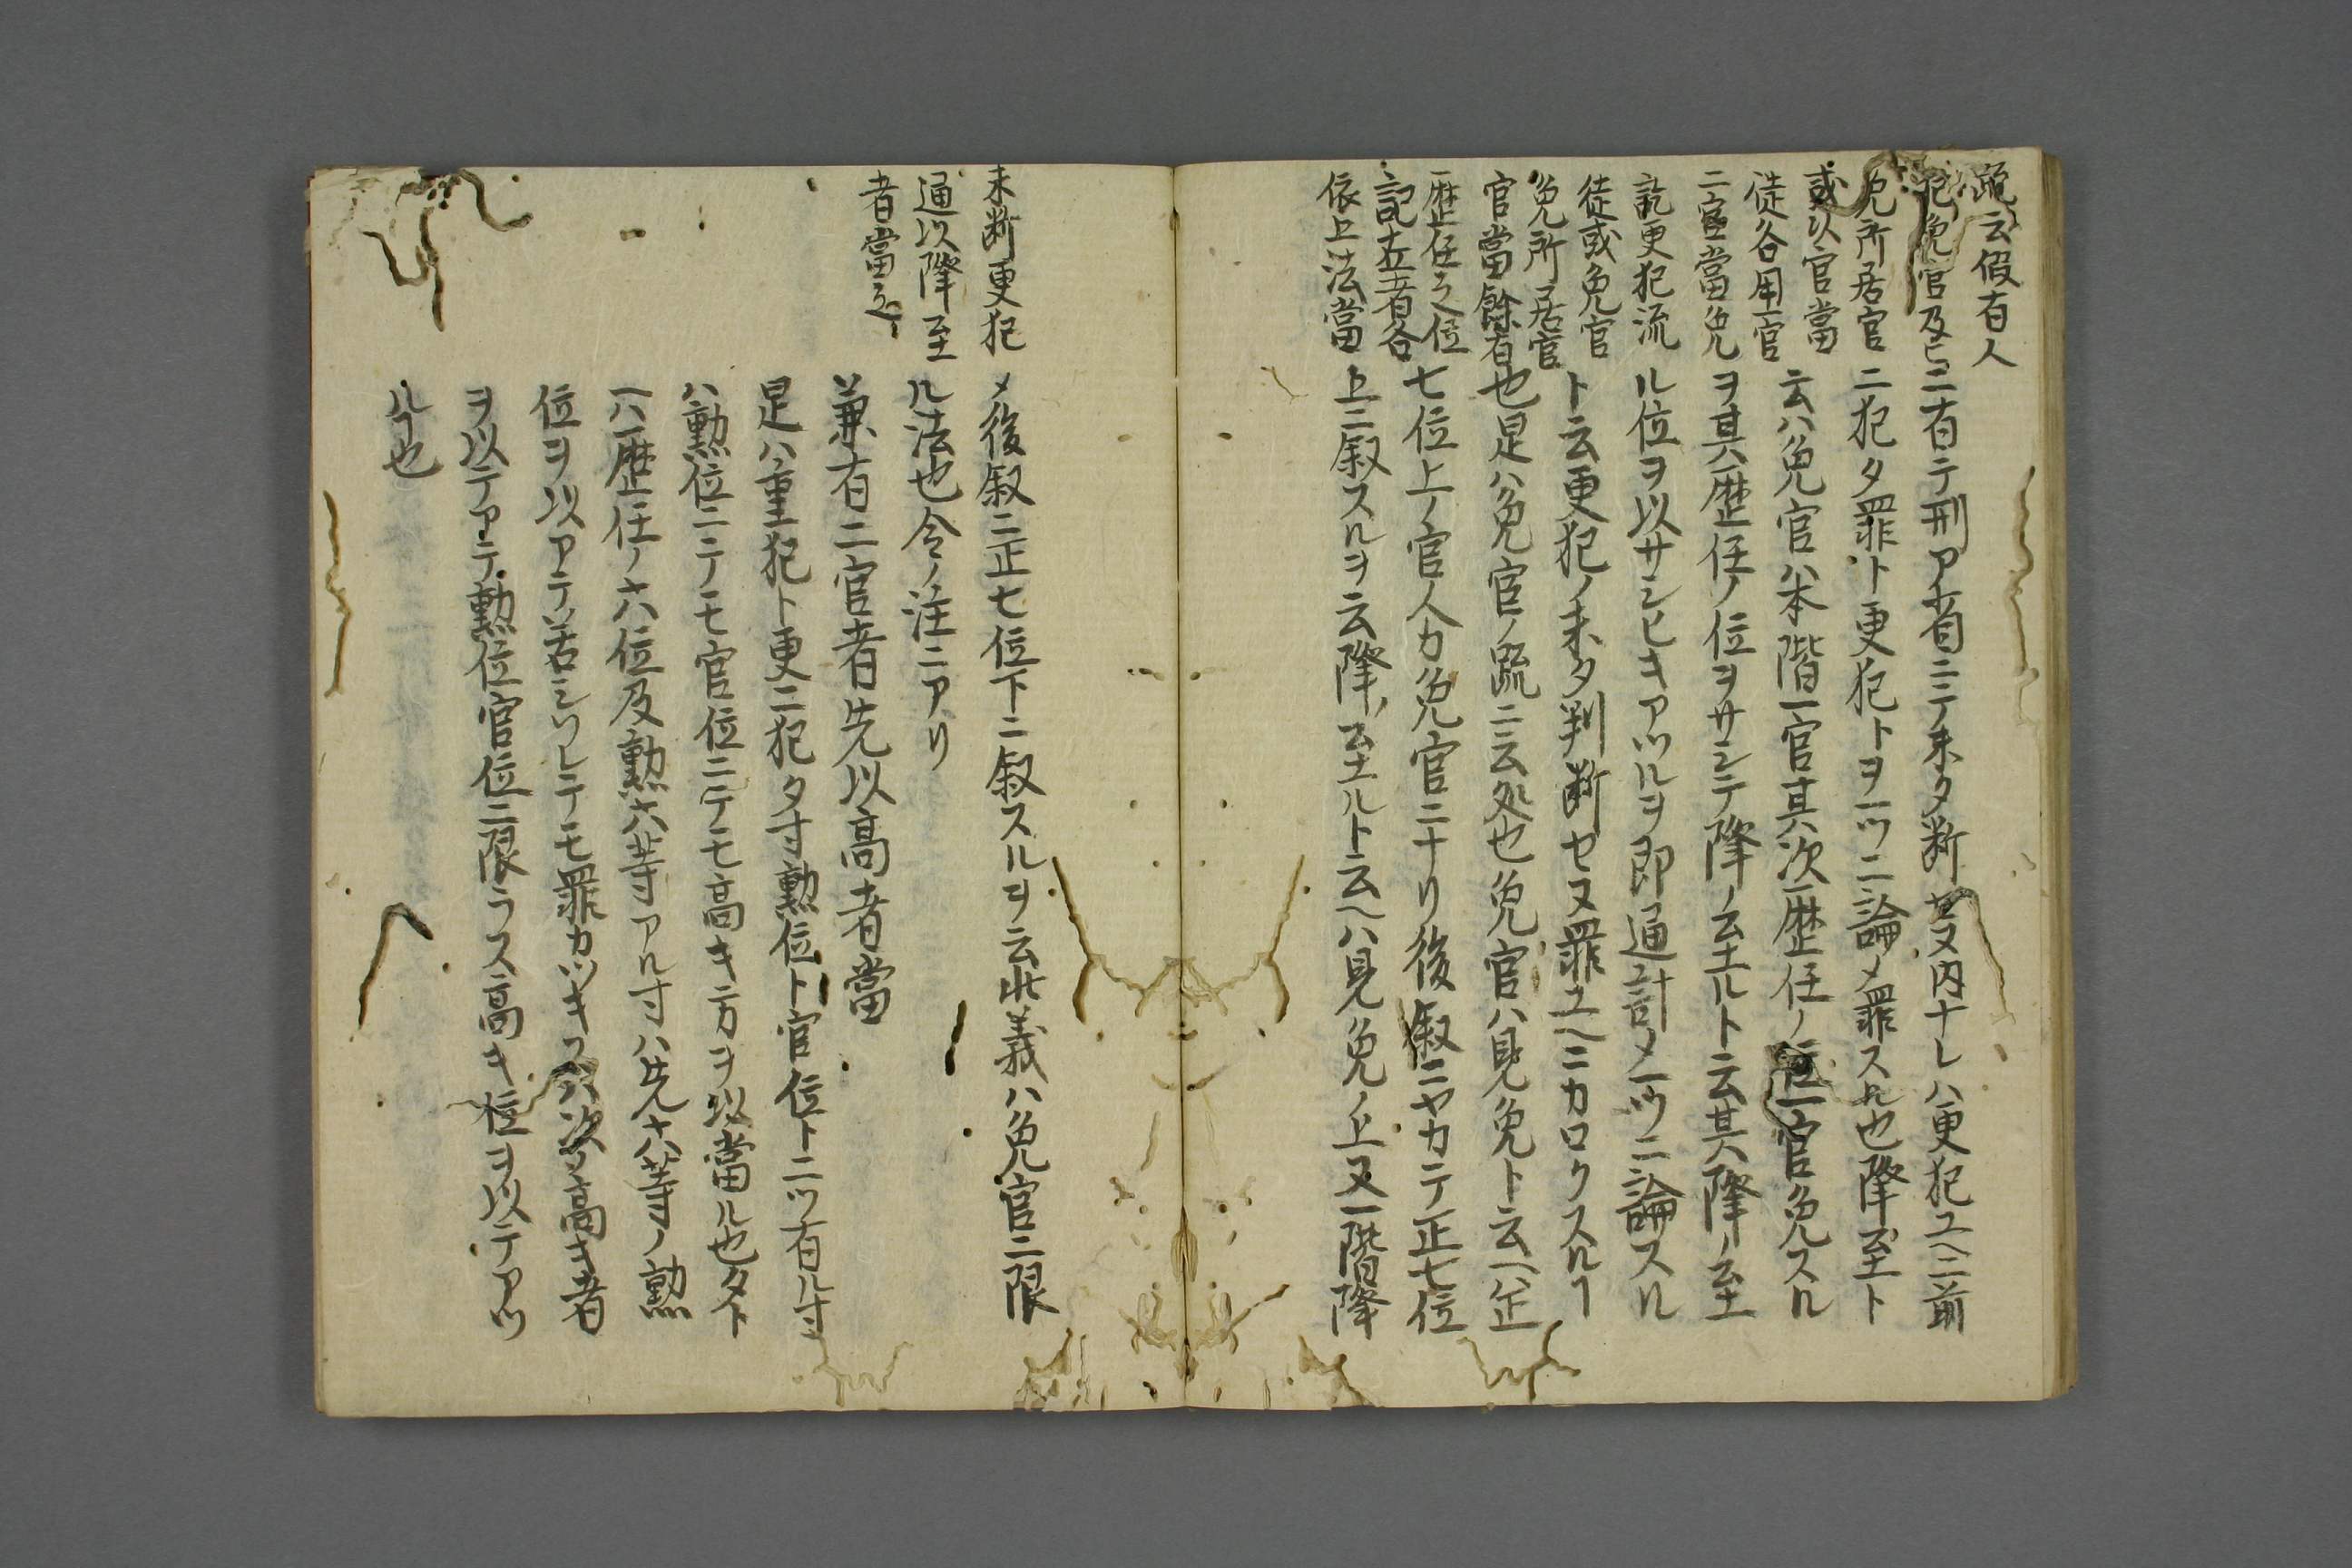 疏云假有人
犯免官及
免所居官
或以官當
徒各用一官
二官當免
訖更犯流
徒或免官
免所居官
官當餘有
歴任之位
記在者各
依上法當
ニ有テ刑ア者ニテ未タ断セヌ内ナレハ更犯ユヘニ前
ニ犯タ罪ト更犯トヲ一ツニ論メ罪スル也降至ト
云ハ免官ハ本階一官其次歴任ノ位一官免スル
ヲ其歴任ノ位ヲサシテ降ノ至ルト云其降ノ至
ル位ヲ以サシヒキアツルヲ即通計メ一ツニ論スル
ト云更犯ノ未タ判断セヌ罪ユヘニカロクスルヿ
也是ハ免官ノ疏ニ云処也免官ハ見免ト云ヘハ正
七位上ノ官人カ免官ニナリ後叙ニヤカテ正七位
上ニ叙スルヲ云降ノ至ルト云ヘハ見免ノ上又一階降
未断更犯
通以降至
者當之
メ後叙ニ正七位下ニ叙スルヲ云此義ハ免官ニ限
ル法也令ノ注ニアリ
兼有二官者先以高者當
是ハ重犯ト更ニ犯タ寸勲位ト官位トニツ有ル寸
ハ勲位ニテモ官位ニテモ高キ方ヲ以當ル也タト
ヘハ歴任ノ六位及勲六等アル寸ハ先六等ノ勲
位ヲ以アテ若シソレニテモ罪カツキスハ次ノ高キ者
ヲ以テアテ勲位官位ニ限ラス高キ位ヲ以テアツ
ルヿ也